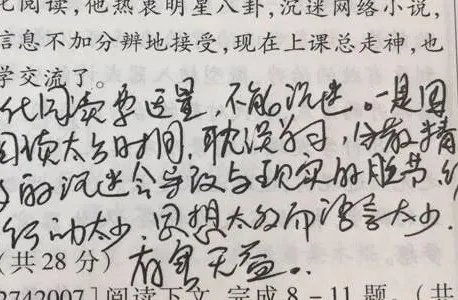 阅读,他热衷明星八卦,沉迷网络小说,
信息不加分辨地接受,现在上课总走神,也
学交流了。
代阅读要适量,不能沉迷。一是因
阅读太占时间,耽误学习,分散精
的沉迷会导致与现实的脱节,
行动太少,思想太多而语言太少.
(共28分) 有害无益..
2742007]阅读下文,完成8-11题。(共